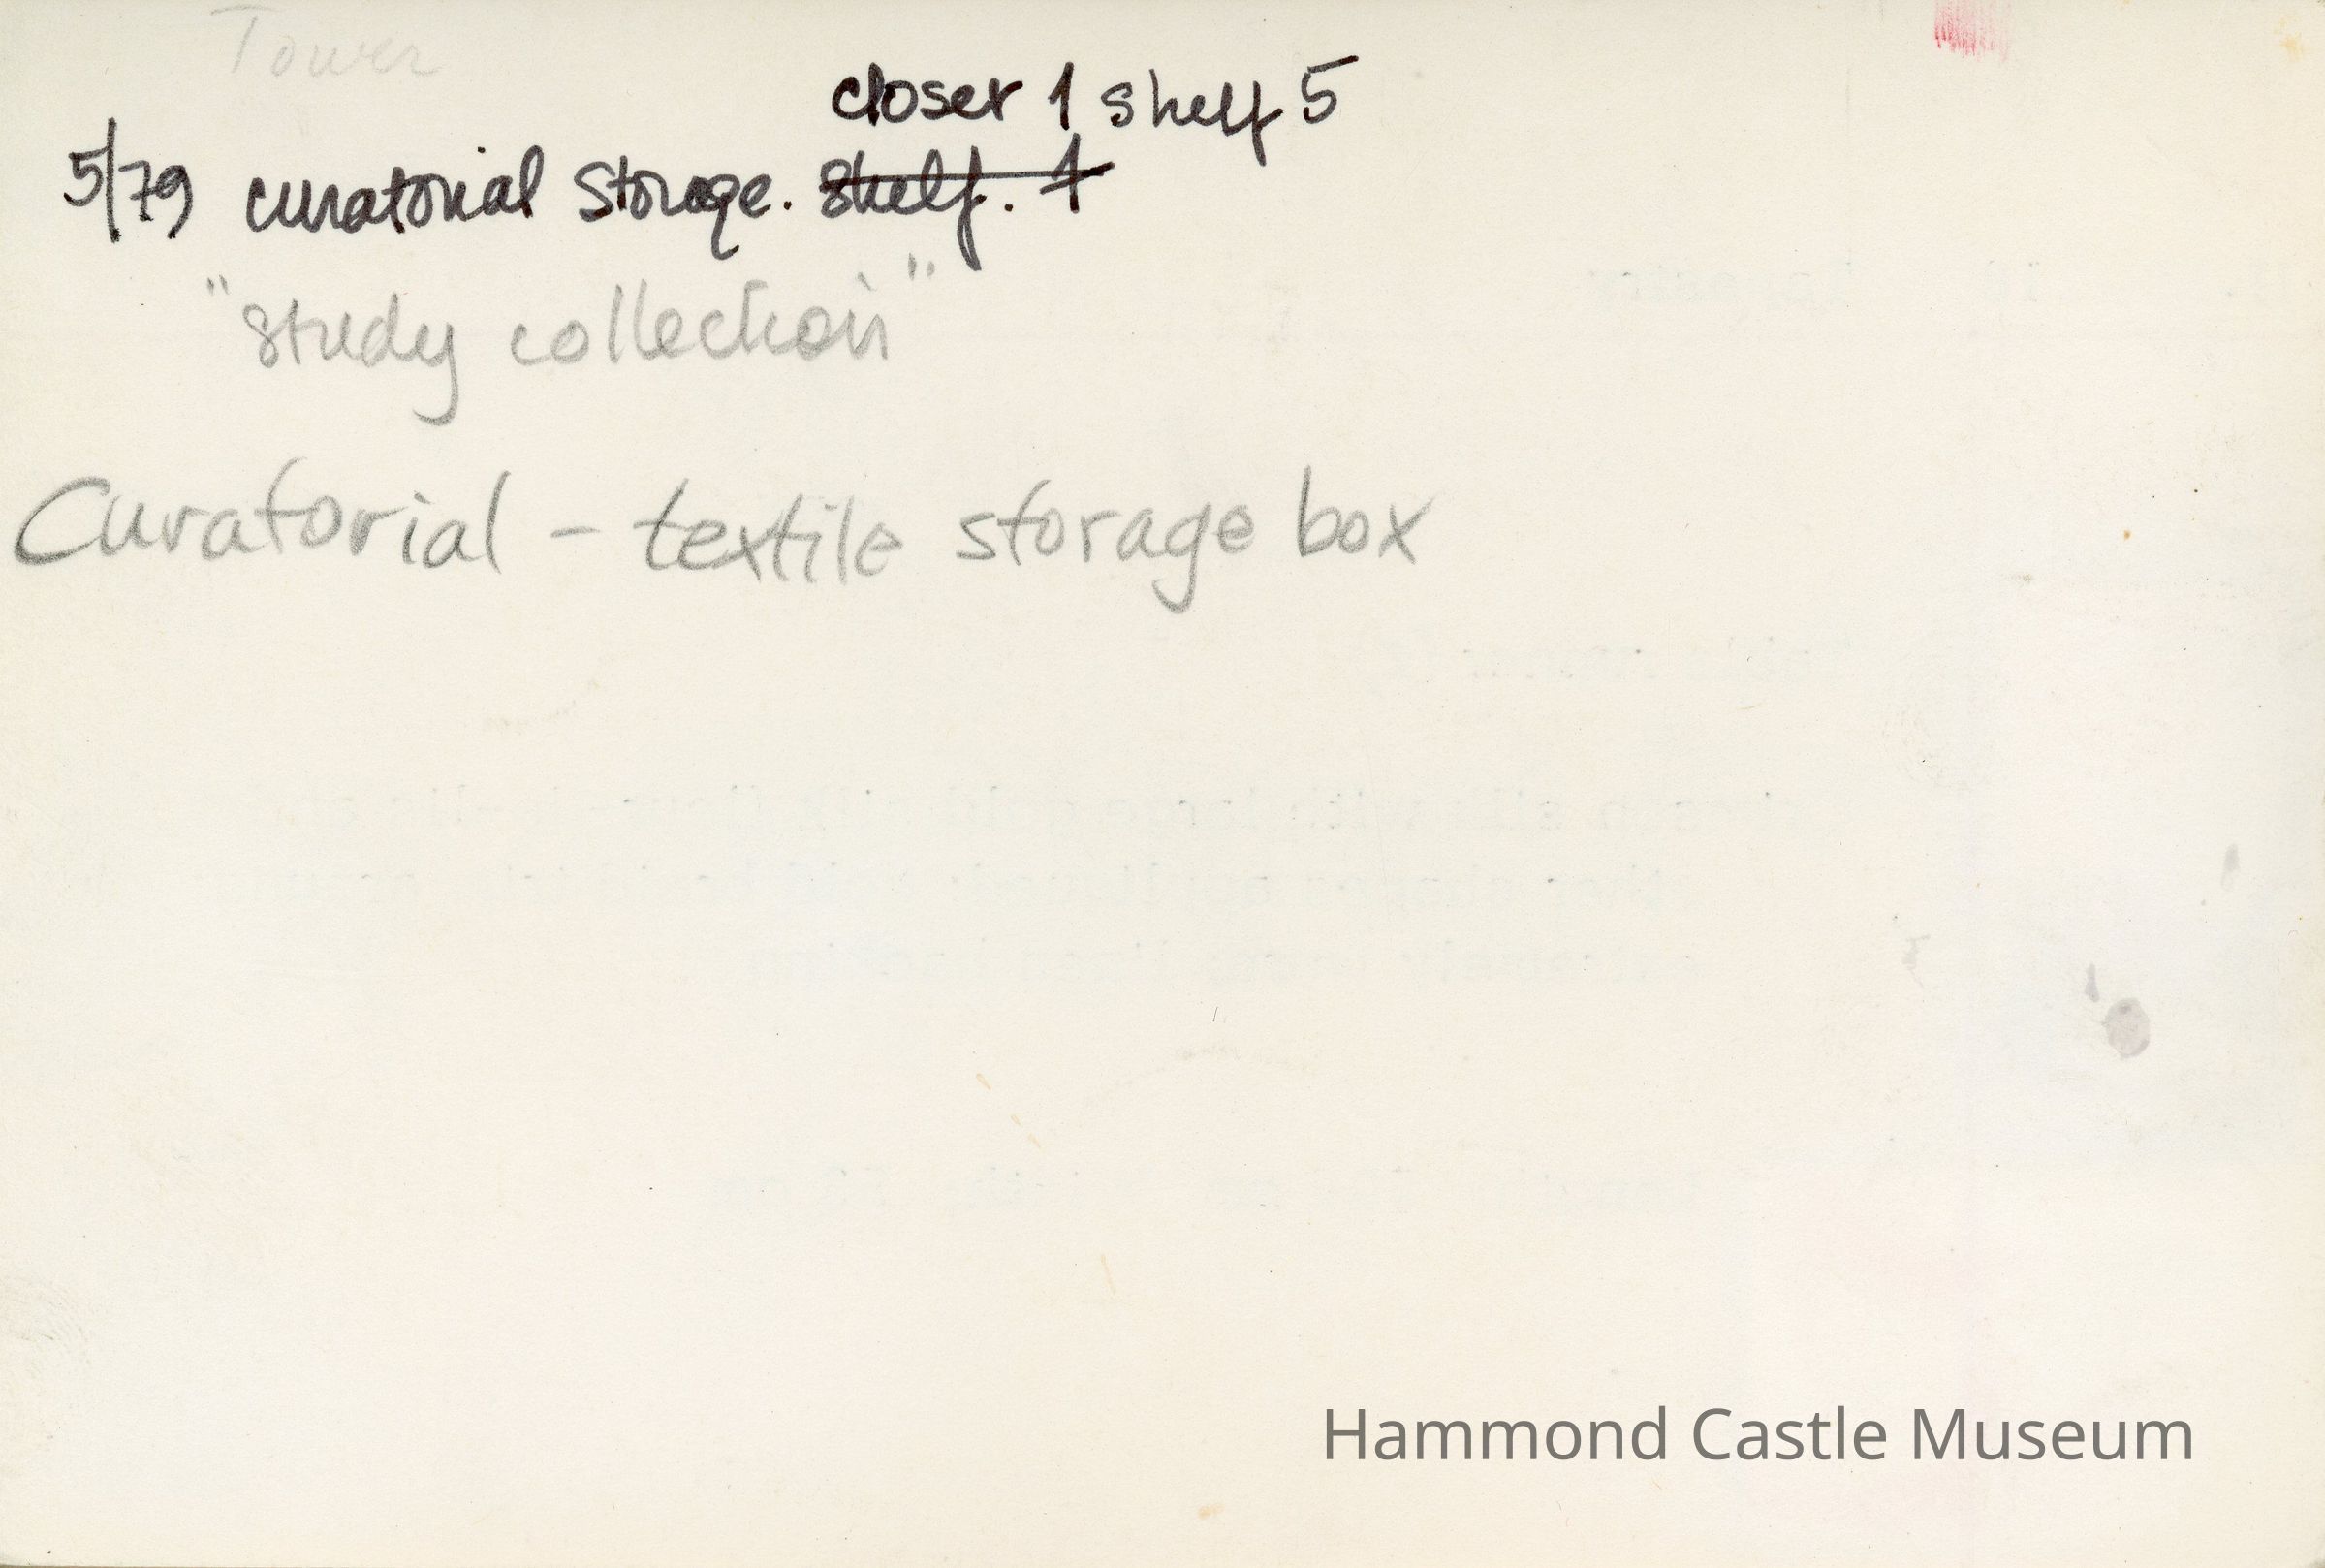 Tower
closet 1 shelf 5
5/79 curatorial storage. shelf. 1
"study collection"
Curatorial - textile storage box
Hammond Castle Museum